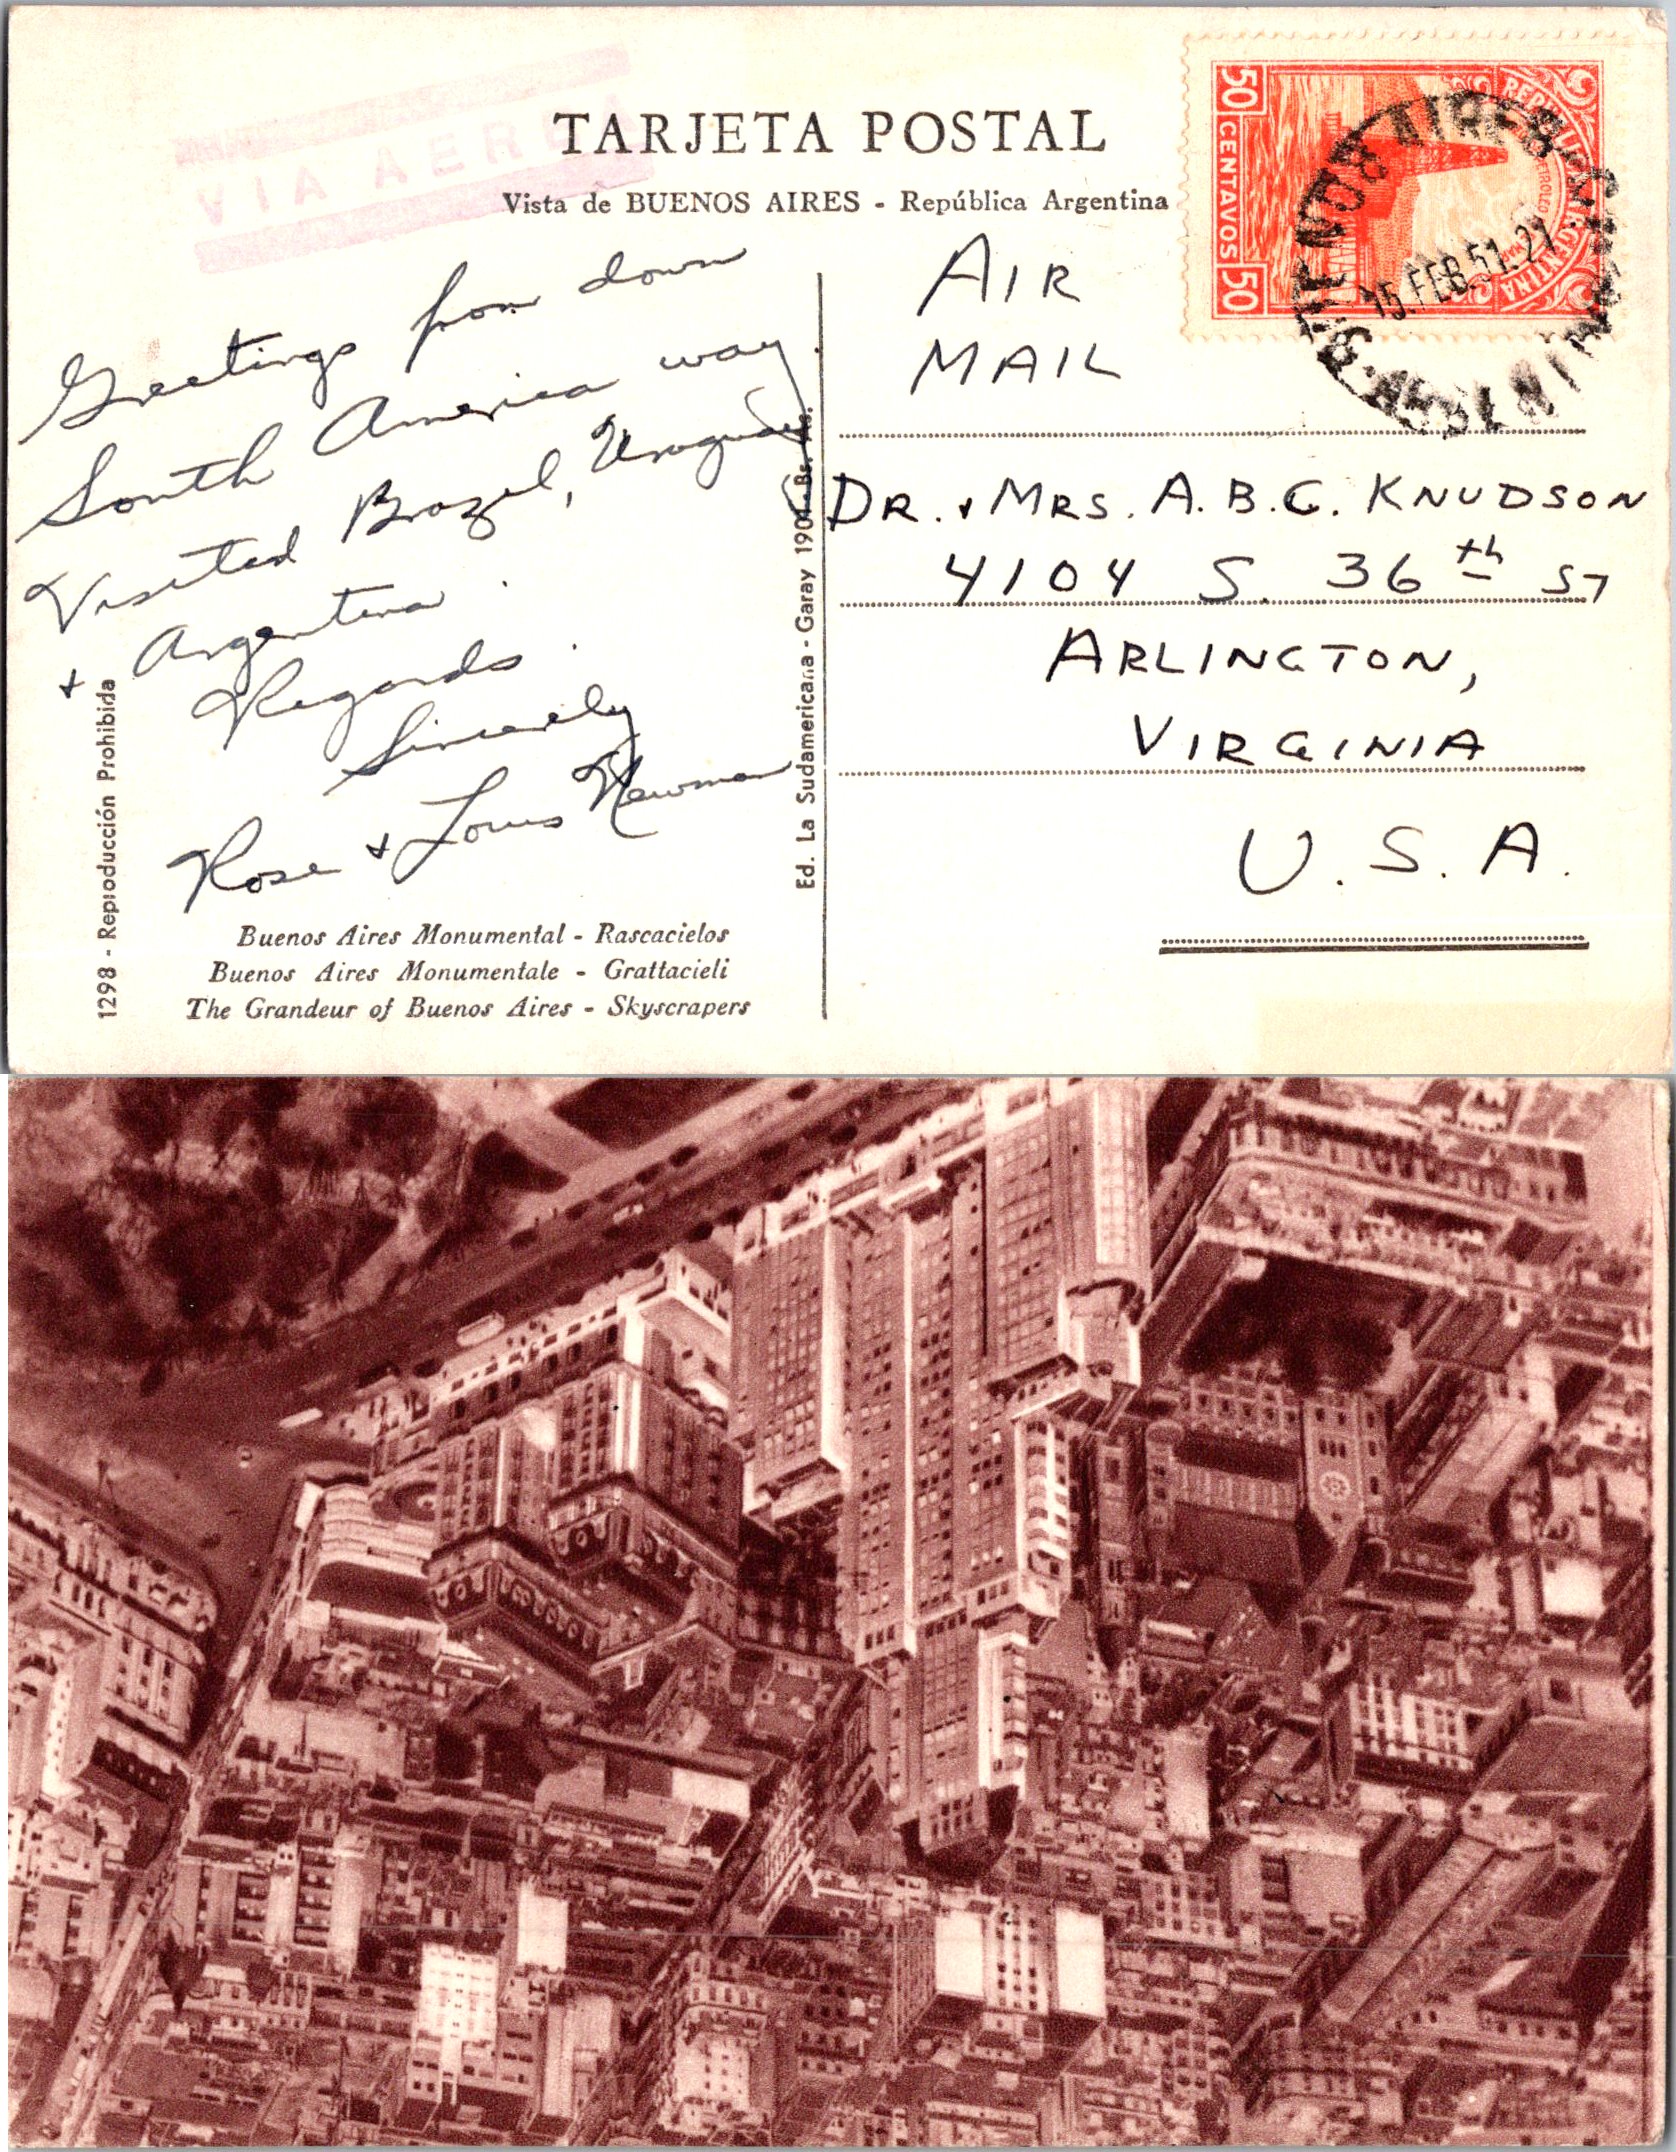 VIA AEREA
TARJETA POSTAL
Vista de BUENOS AIRES - República Argentina
50 CENTAVOS 50
REPUBLICA ARGENTINA
BUENOS AIRES
15.FEB.51.21
ARGENTINA
AIR
MAIL
Greetings from down
South America way
Visited Brazil, Uruguay
+ Argentina.
Regards.
Sincerely
Rose + Louis Newman
DR. + MRS. A. B. C. KNUDSON
4104 S. 36th ST
ARLINGTON,
VIRGINIA
U. S. A.
Ed. La Sudamericana - Garay 190 - Bs. As.
1298 - Reproducción Prohibida
Buenos Aires Monumental - Rascacielos
Buenos Aires Monumentale - Grattacieli
The Grandeur of Buenos Aires - Skyscrapers